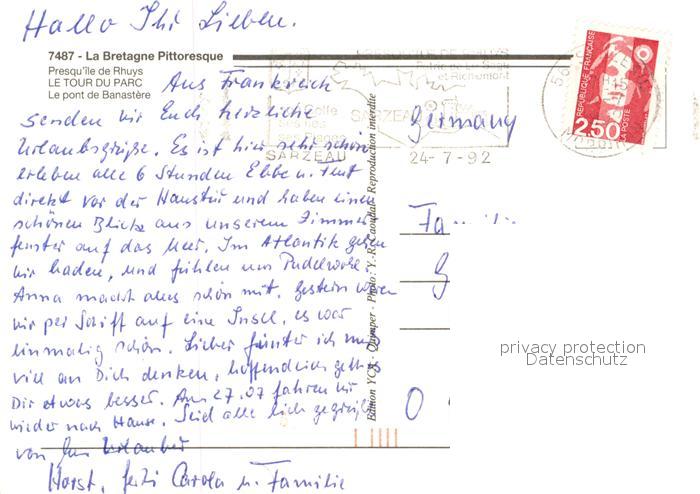 Hallo Ihr Lieben.
7487 - La Bretagne Pittoresque
Presqu'île de Rhuys
LE TOUR DU PARC
Le pont de Banastère
PRESQU'ILE DE RHUYS
et Richemont
SARZEAU
SARZEAU
24-7-92
REPUBLIQUE FRANÇAISE
2,50
LA POSTE
MORBIHAN
Aus Frankreich
senden wir Euch herzliche
Urlaubsgrüße. Es ist hier sehr schön
erleben alle 6 Stunden Ebbe u. Flut
direkt vor der Haustür und haben einen
schönen Blick aus unserem Zimmer
fenster auf das Meer. Im Atlantik gehen
wir baden, und fühlen uns Pudelwohl.
Anna macht alles schön mit. Gestern waren
wir per Schiff auf eine Insel, es war
einmalig schön. Lieber Günter ich muß
viel an Dich denken, hoffendlich geht es
Dir etwas besser. Am 27.07 fahren wir
wieder nach Hause. Seid alle lieb gegrüßt
von den Urlauber
Horst, Carola u. Familie
Edition YCA - Quimper - Photo : Y.-R. Caoudal - Reproduction interdite
Germany
Fa
G
O
privacy protection
Datenschutz